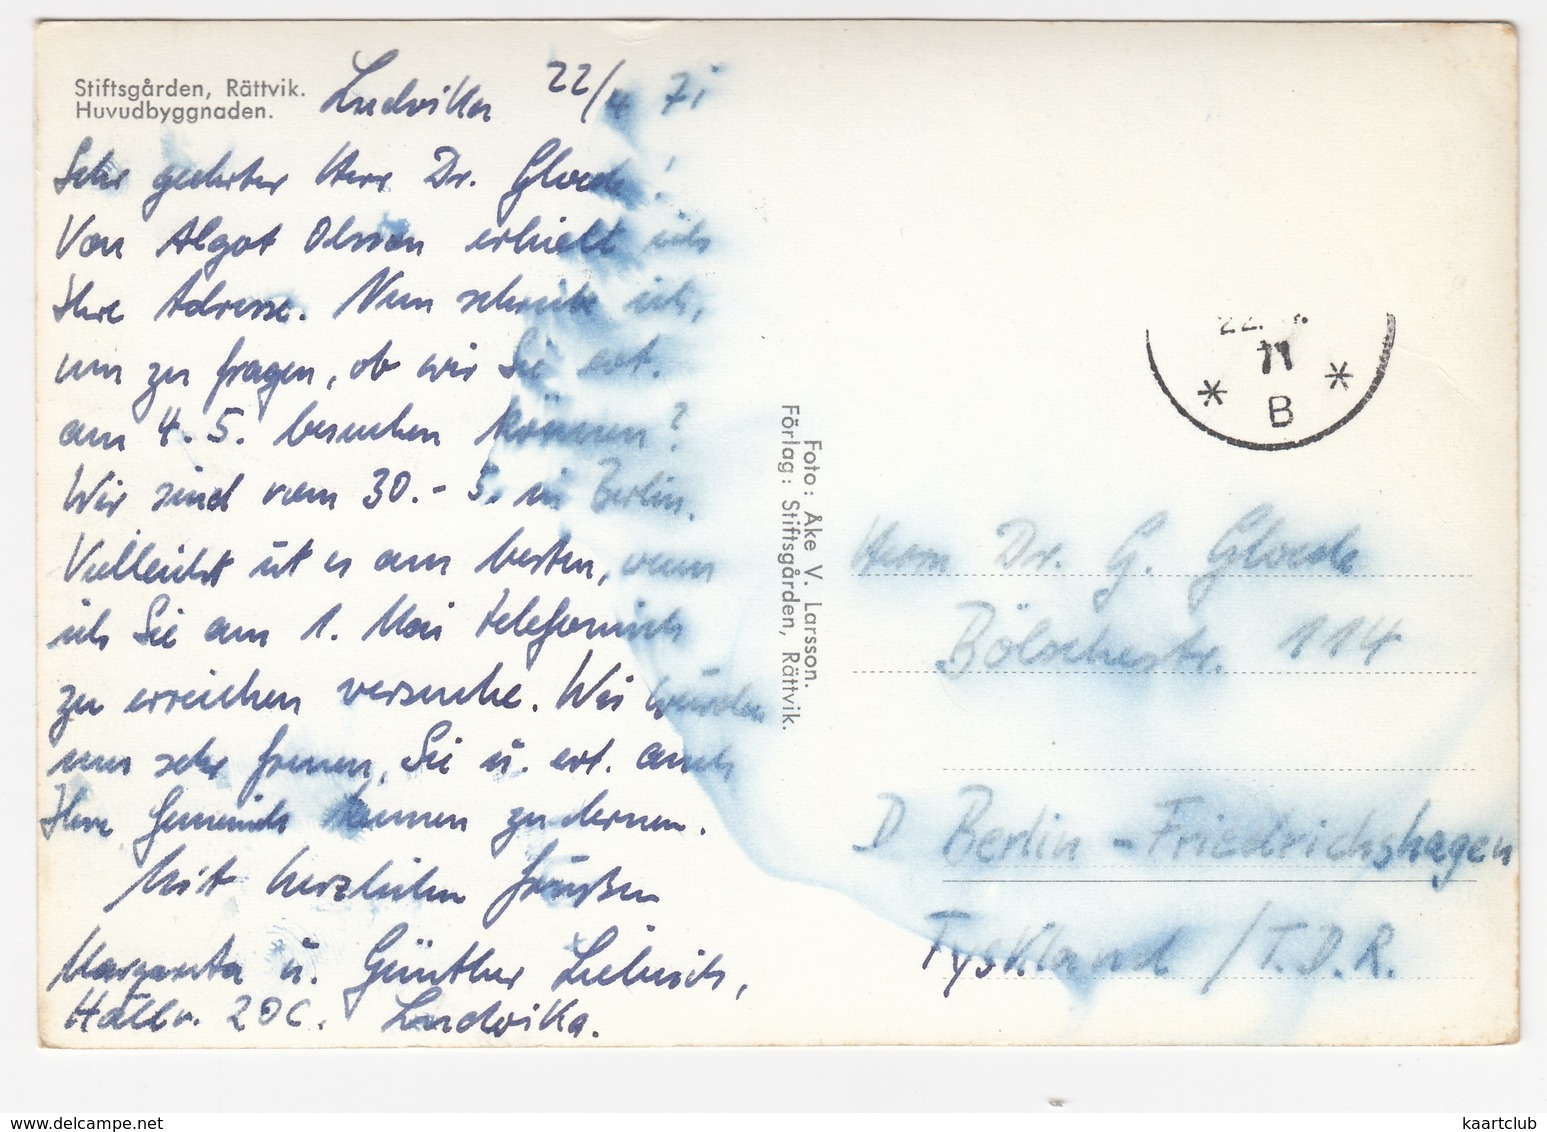 Stiftsgården, Rättvik.
Huvudbyggnaden.
Ludvika 22/4 71
Sehr geehrter Herr Dr. Gloede!
Von Algot Olsson erhielt ich
Ihre Adresse. Nun schreibe ich,
um zu fragen, ob wir Sie evt.
am 4.5. besuchen können?
Wir sind vom 30.-5. in Berlin.
Vielleicht ist es am besten, wenn
ich Sie am 1. Mai telefonisch
zu erreichen versuche. Wir würden
uns sehr freuen, Sie u. evt. auch
Ihre Gemeinde kennen zu lernen.
Mit herzlichen Grüßen
Margareta u. Günther Liebisch,
20C. Ludvika.
Foto: Åke V. Larsson.
Förlag: Stiftsgården, Rättvik.
22.
71
* B *
Herrn Dr. G. Gloede
Bölschestr. 114
D Berlin-Friedrichshagen
Tyskland / T.D.R.
www.delcampe.net
kaartclub